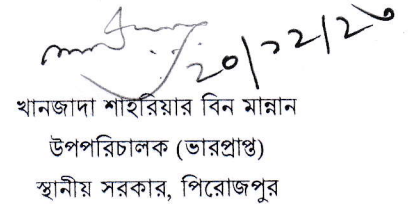 ২০/১২/২৩
খানজাদা শাহরিয়ার বিন মান্নান
উপপরিচালক (ভারপ্রাপ্ত)
স্থানীয় সরকার, পিরোজপুর